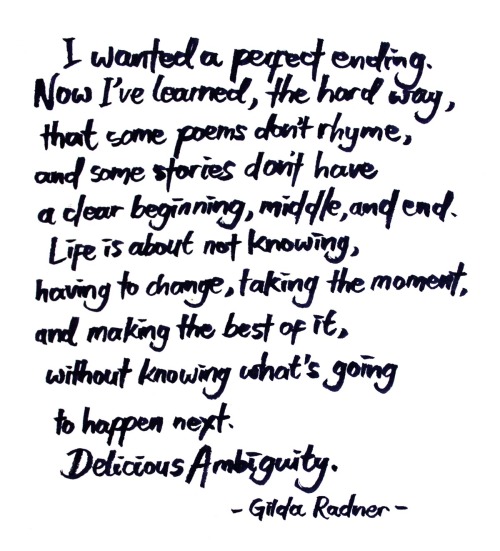 I wanted a perfect ending.
Now I've learned, the hard way,
that some poems don't rhyme,
and some stories don't have
a clear beginning, middle, and end.
Life is about not knowing,
having to change, taking the moment,
and making the best of it,
without knowing what's going
to happen next.
Delicious Ambiguity.
- Gilda Radner -